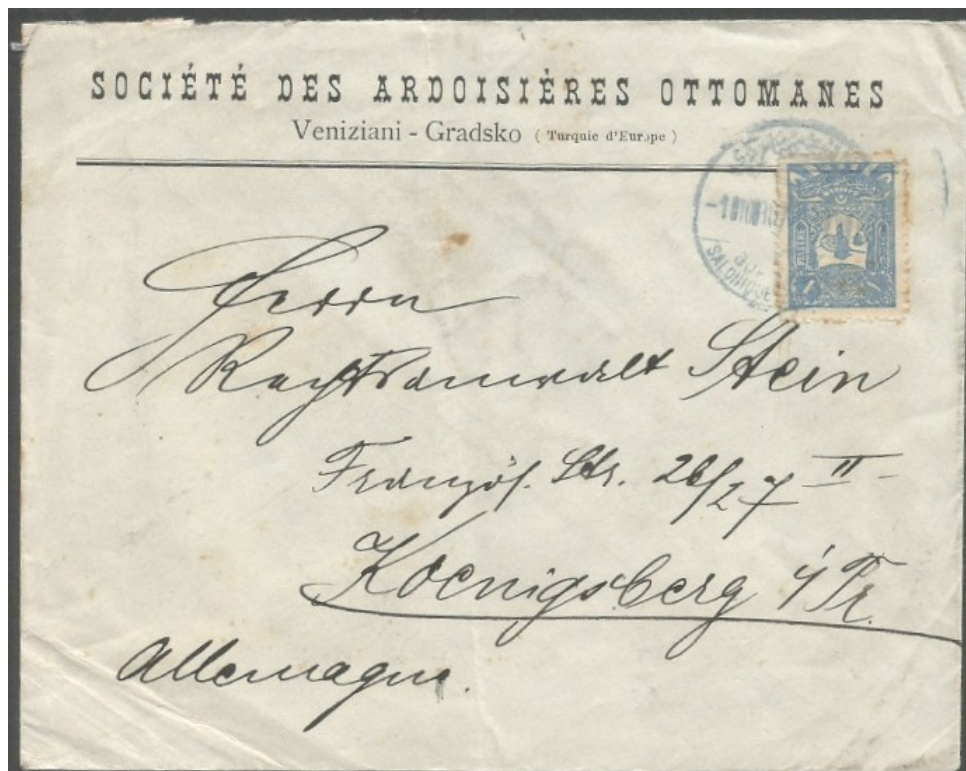 SOCIÉTÉ DES ARDOISIÈRES OTTOMANES
Veniziani - Gradsko (Turquie d'Europe)
SALONIQUE
PIASTRE
1 1
Herrn
Rechtsanwalt Stein
Französ. Str. 26/27 II
Koenigsberg i/Pr.
Allemagne.